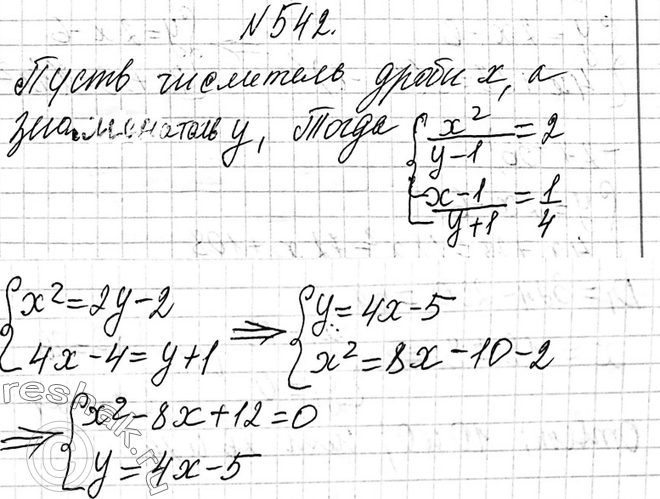 N542.
Пусть числитель дроби x, а
знаменатель y, тогда { x²/(y-1) = 2
{ (x-1)/(y+1) = 1/4
{ x² = 2y-2
{ 4x-4 = y+1
⇒ { y = 4x-5
{ x² = 8x-10-2
⇒ { x²-8x+12=0
{ y = 4x-5
reshak.ru